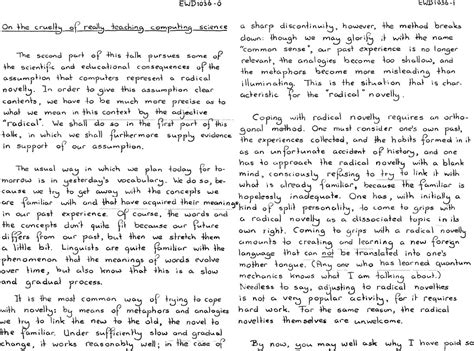 EWD1036-0
On the cruelty of really teaching computing science
The second part of this talk pursues some of
the scientific and educational consequences of the
assumption that computers represent a radical
novelty. In order to give this assumption clear
contents, we have to be much more precise as to
what we mean in this context by the adjective
"radical". We shall do so in the first part of this
talk, in which we shall furthermore supply evidence
in support of our assumption.
The usual way in which we plan today for to-
morrow is in yesterday's vocabulary. We do so, be-
cause we try to get away with the concepts we
are familiar with and that have acquired their meanings
in our past experience. Of course, the words and
the concepts don't quite fit because our future
differs from our past, but then we stretch them
a little bit. Linguists are quite familiar with the
phenomenon that the meanings of words evolve
over time, but also know that this is a slow
and gradual process.
It is the most common way of trying to cope
with novelty: by means of metaphors and analogies
we try to link the new to the old, the novel to
the familiar. Under sufficiently slow and gradual
change, it works reasonably well; in the case of
EWD1036-1
a sharp discontinuity, however, the method breaks
down: though we may glorify it with the name
"common sense", our past experience is no longer
relevant, the analogies become too shallow, and
the metaphors become more misleading than
illuminating. This is the situation that is char-
acteristic for the "radical" novelty.
Coping with radical novelty requires an ortho-
gonal method. One must consider one's own past,
the experiences collected, and the habits formed in it
as an unfortunate accident of history, and one
has to approach the radical novelty with a blank
mind, consciously refusing to try to link it with
what is already familiar, because the familiar is
hopelessly inadequate. One has, with initially a
kind of split personality, to come to grips with
a radical novelty as a dissociated topic in its
own right. Coming to grips with a radical novelty
amounts to creating and learning a new foreign
language that can not be translated into one's
mother tongue. (Any one who has learned quantum
mechanics knows what I am talking about.)
Needless to say, adjusting to radical novelties
is not a very popular activity, for it requires
hard work. For the same reason, the radical
novelties themselves are unwelcome.
By now, you may well ask why I have paid so